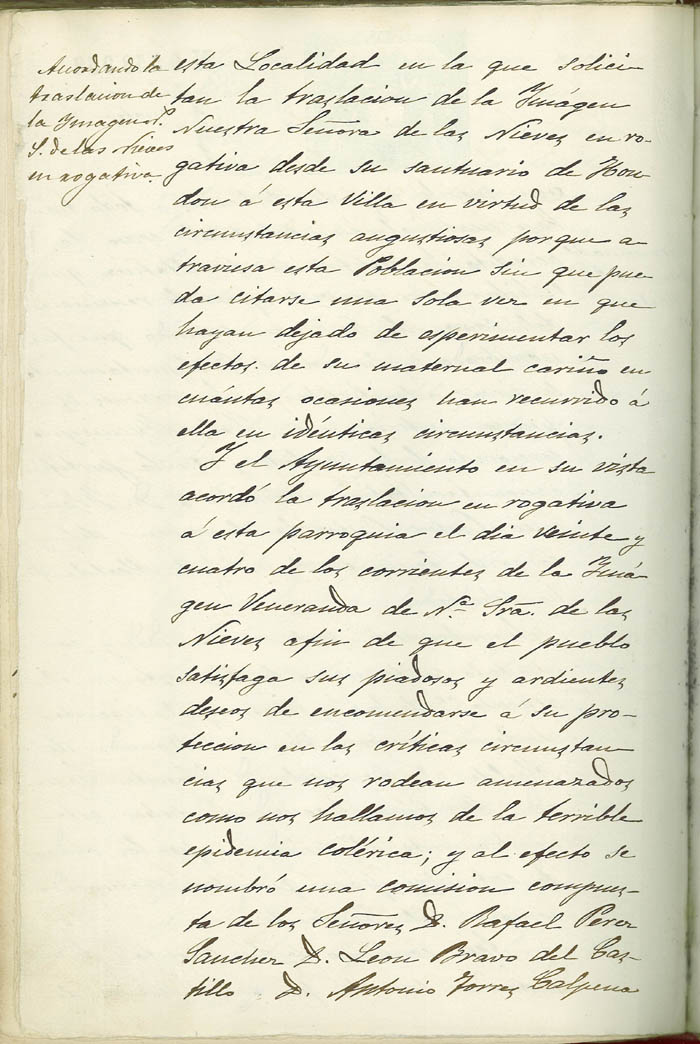 Acordando la
traslacion de
la Ymagen N.
S. de las Nieves
en rogativa.
esta Localidad en la que solici-
tan la traslacion de la Ymágen
Nuestra Señora de las Nieves en ro-
gativa desde su santuario de Hon-
don á esta Villa en virtud de las
circunstancias angustiosas porque a-
traviesa esta Poblacion sin que pue-
da citarse una sola vez en que
hayan dejado de esperimentar los
efectos de su maternal cariño en
cuántas ocasiones han recurrido á
ella en idénticas circunstancias.
Y el Ayuntamiento en su vista
acordó la traslacion en rogativa
á esta parroquia el dia veinte y
cuatro de los corrientes de la Ymá-
gen Veneranda de Nª Sra. de las
Nieves afin de que el pueblo
satisfaga sus piadosos y ardientes
deseos de encomendarse á su pro-
teccion en las críticas circunstan-
cias que nos rodean amenazados
como nos hallamos de la terrible
epidemia colérica; y al efecto se
nombró una comision compues-
ta de los Señores D. Rafael Perez
Sanchez D. Leon Bravo del Cas-
tillo D. Antonio Torres Calpena